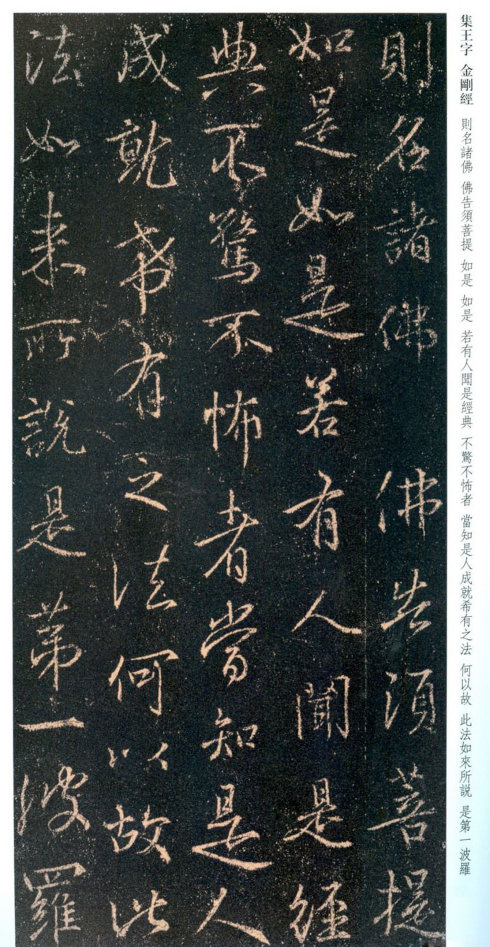 集王字 金剛經 則名諸佛 佛告須菩提 如是 如是 若有人聞是經典 不驚不怖者 當知是人成就希有之法 何以故 此法如來所説 是第一波羅
則名諸佛 佛告須菩提
如是如是若有人聞是經
典不驚不怖者當知是人
成就希有之法何以故此
法如来所説是第一波羅